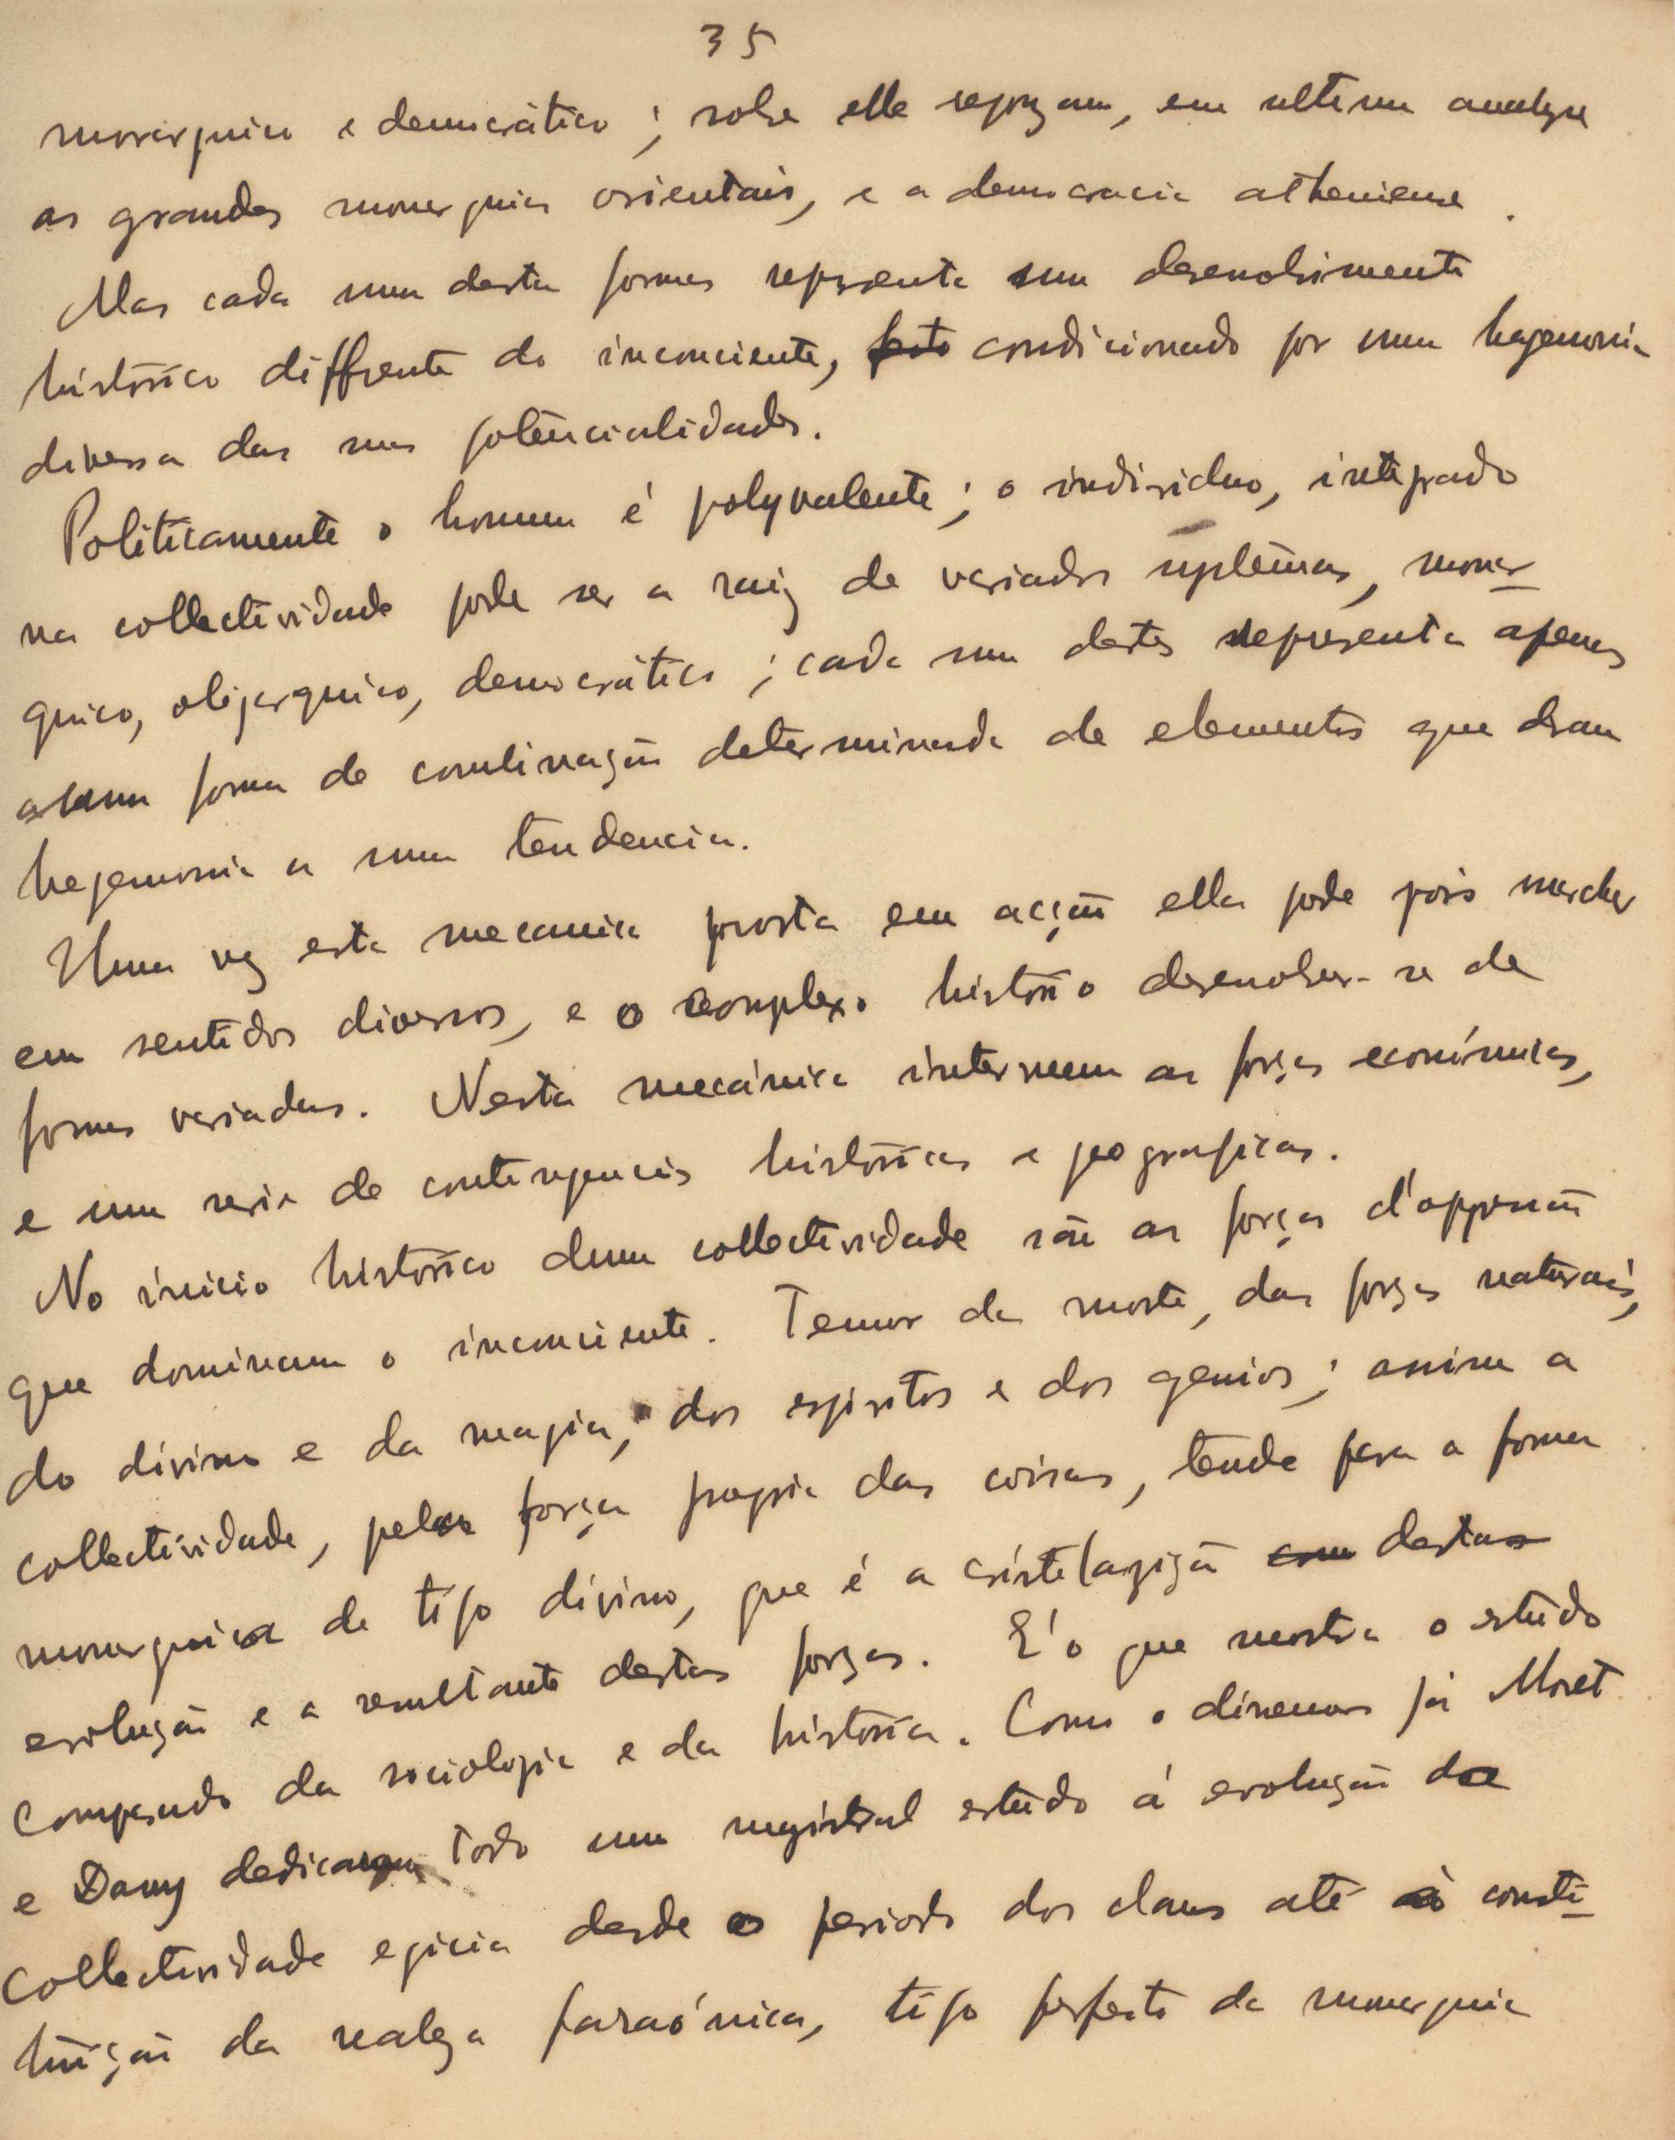 35
monarquico e democrático; sobre elle repozam, em ultima analyse
as grandes monarquias orientais, e a democracia atheniense.
Mas cada uma destas formas representa um desenvolvimento
histórico diffrente do inconciente, condicionado por uma hegemonia
diversa das suas potencialidades.
Politicamente o homem é polyvalente; o individuo, integrado
na collectividade pode ser a raiz de variados systemas, monar-
quico, oligarquico, democrático; cada um destes representa apenas
uma forma de combinação determinada de elementos que dram
hegemonia a uma tendencia.
Uma vez esta mecanica posta em acção ella pode pois marchar
em sentidos diversos, e o complexo histórico desenvolver-se de
formas variadas. Nesta mecánica interveem as forças económicas,
e uma serie de contingencias históricas e geograficas.
No início histórico duma collectividade são as forças d'oppressão
que dominam o inconciente. Temor da morte, das forças naturais,
do divino e da magia, dos espiritos e dos genios; assim a
collectividade, pela força propria das coisas, tende para a forma
monarquica de tipo divino, que é a cristalização com destas
evolução e a resultante destas forças. É o que mostra o estudo
comparado da sociologia e da história. Como o dissemos já Moret
e Davy dedicaram todo um magistral estudo á evolução da
collectividade egicia desde o periodo dos clans até á consti-
tuição da realeza faraónica, tipo perfeito da monarquia